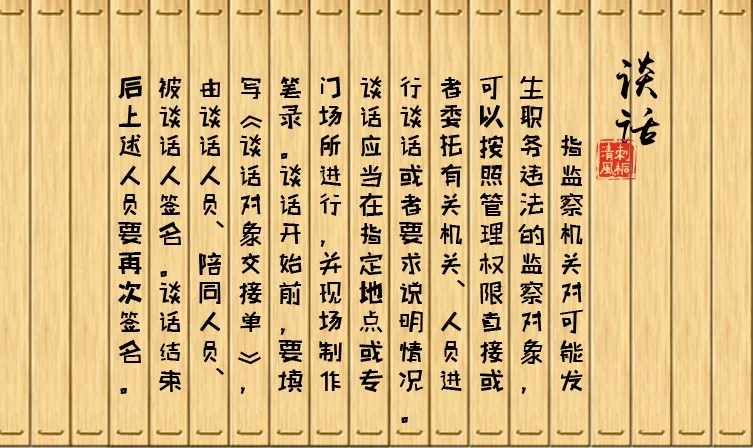 谈话
刺桐
清風
指监察机关对可能发
生职务违法的监察对象，
可以按照管理权限直接或
者委托有关机关、人员进
行谈话或者要求说明情况。
谈话应当在指定地点或专
门场所进行，并现场制作
笔录。谈话开始前，要填
写《谈话对象交接单》，
由谈话人员、陪同人员、
被谈话人签名。谈话结束
后上述人员要再次签名。